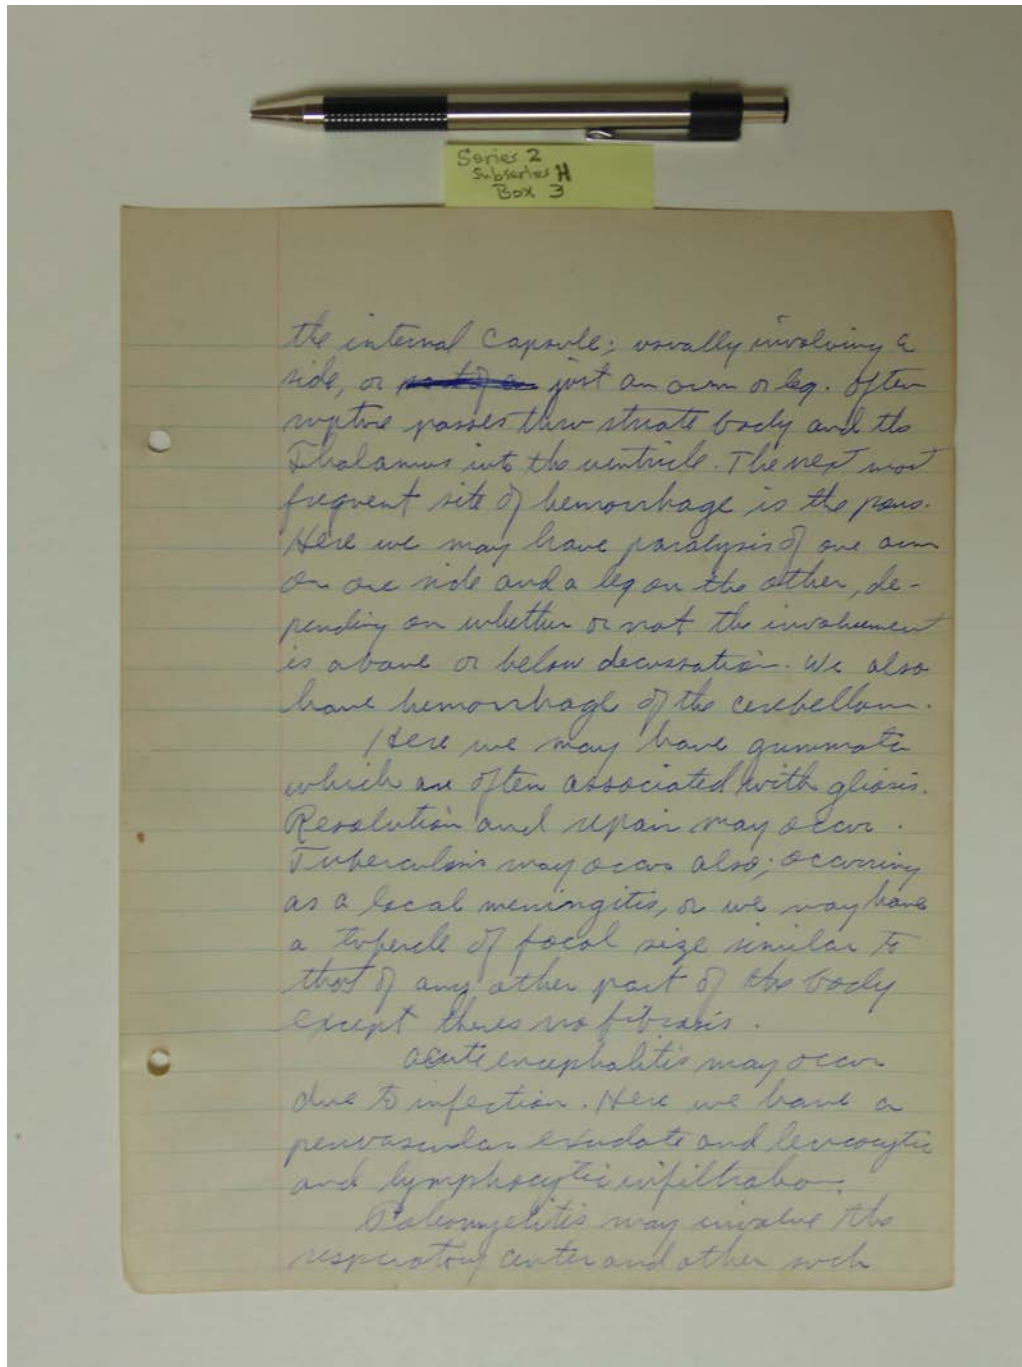 Series 2
Subseries H
Box 3
the internal capsule; usually involving a
side, or just an arm or leg. Often
rupture passes thru striate body and the
Thalamus into the ventricle. The next most
frequent site of hemorrhage is the pons.
Here we may have paralysis of one arm
on one side and a leg on the other, de-
pending on whether or not the involvement
is above or below decussation. We also
have hemorrhage of the cerebellum.
Here we may have gummata
which are often associated with gliosis.
Resolution and repair may occur.
Tuberculosis may occur also; occurring
as a local meningitis, or we may have
a tubercle of focal size similar to
that of any other part of the body
except theres no fibrosis.
acute encephalitis may occur
due to infection. Here we have a
perivascular exudate and leucocytic
and lymphocytic infiltration.
Poliomyelitis may involve the
respiratory center and other such